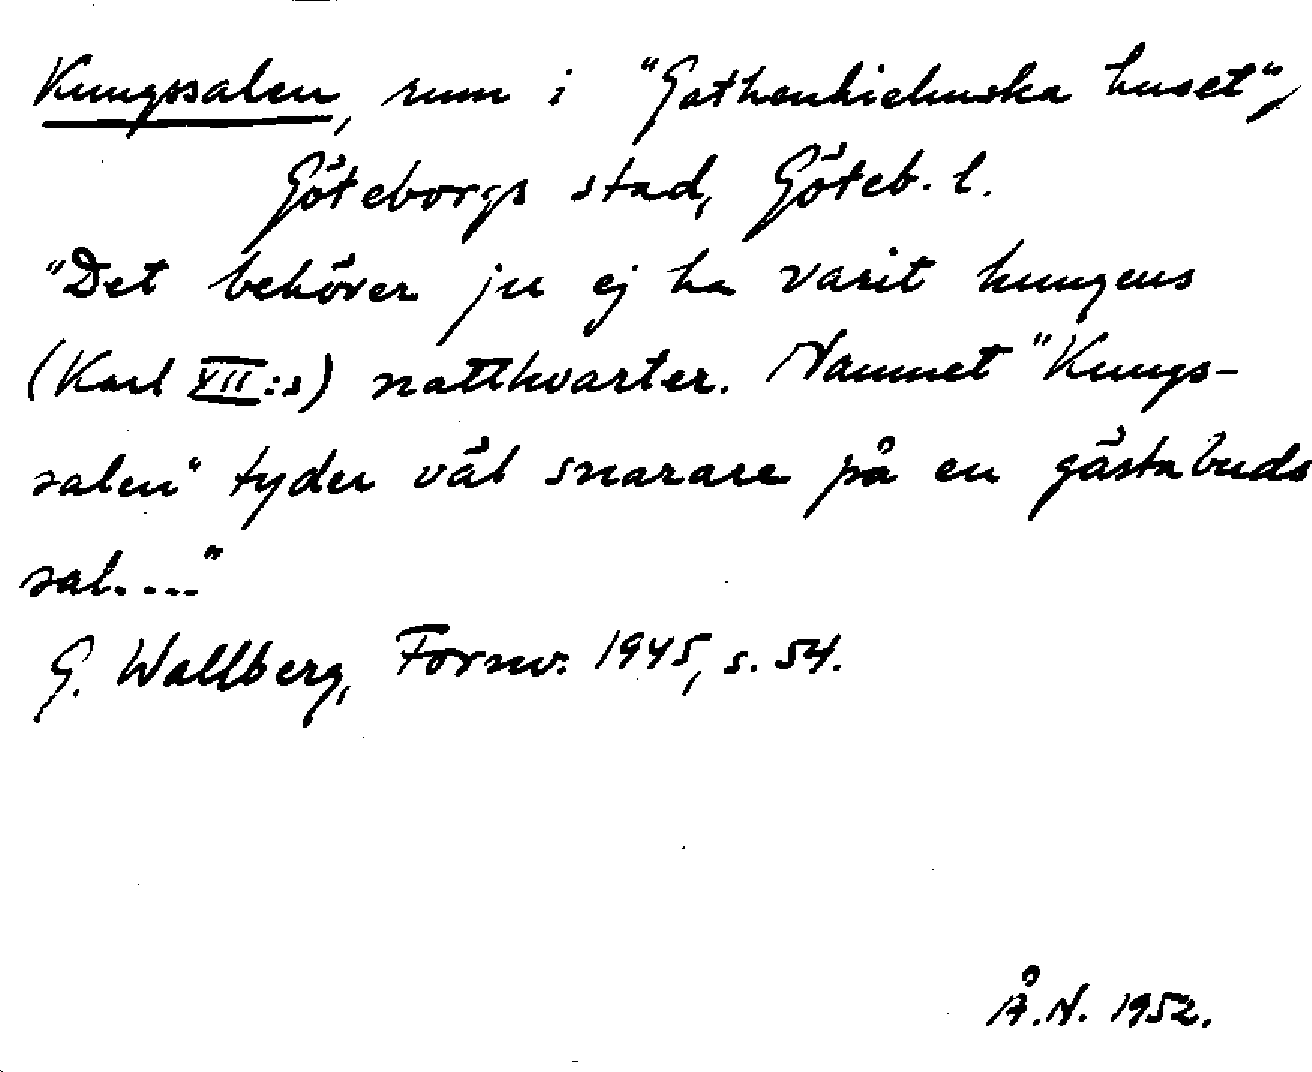 Kungssalen, rum i "Gathenhielmska huset",
Göteborgs stad, Göteb. l.
"Det behöver ju ej ha varit kungens
(Karl XII:s) nattkvarter. Namnet "Kungs-
salen" tyder väl snarare på en gästabuds
sal...."
G. Wallberg, Fornv. 1945, s. 54.
Å.N. 1952.